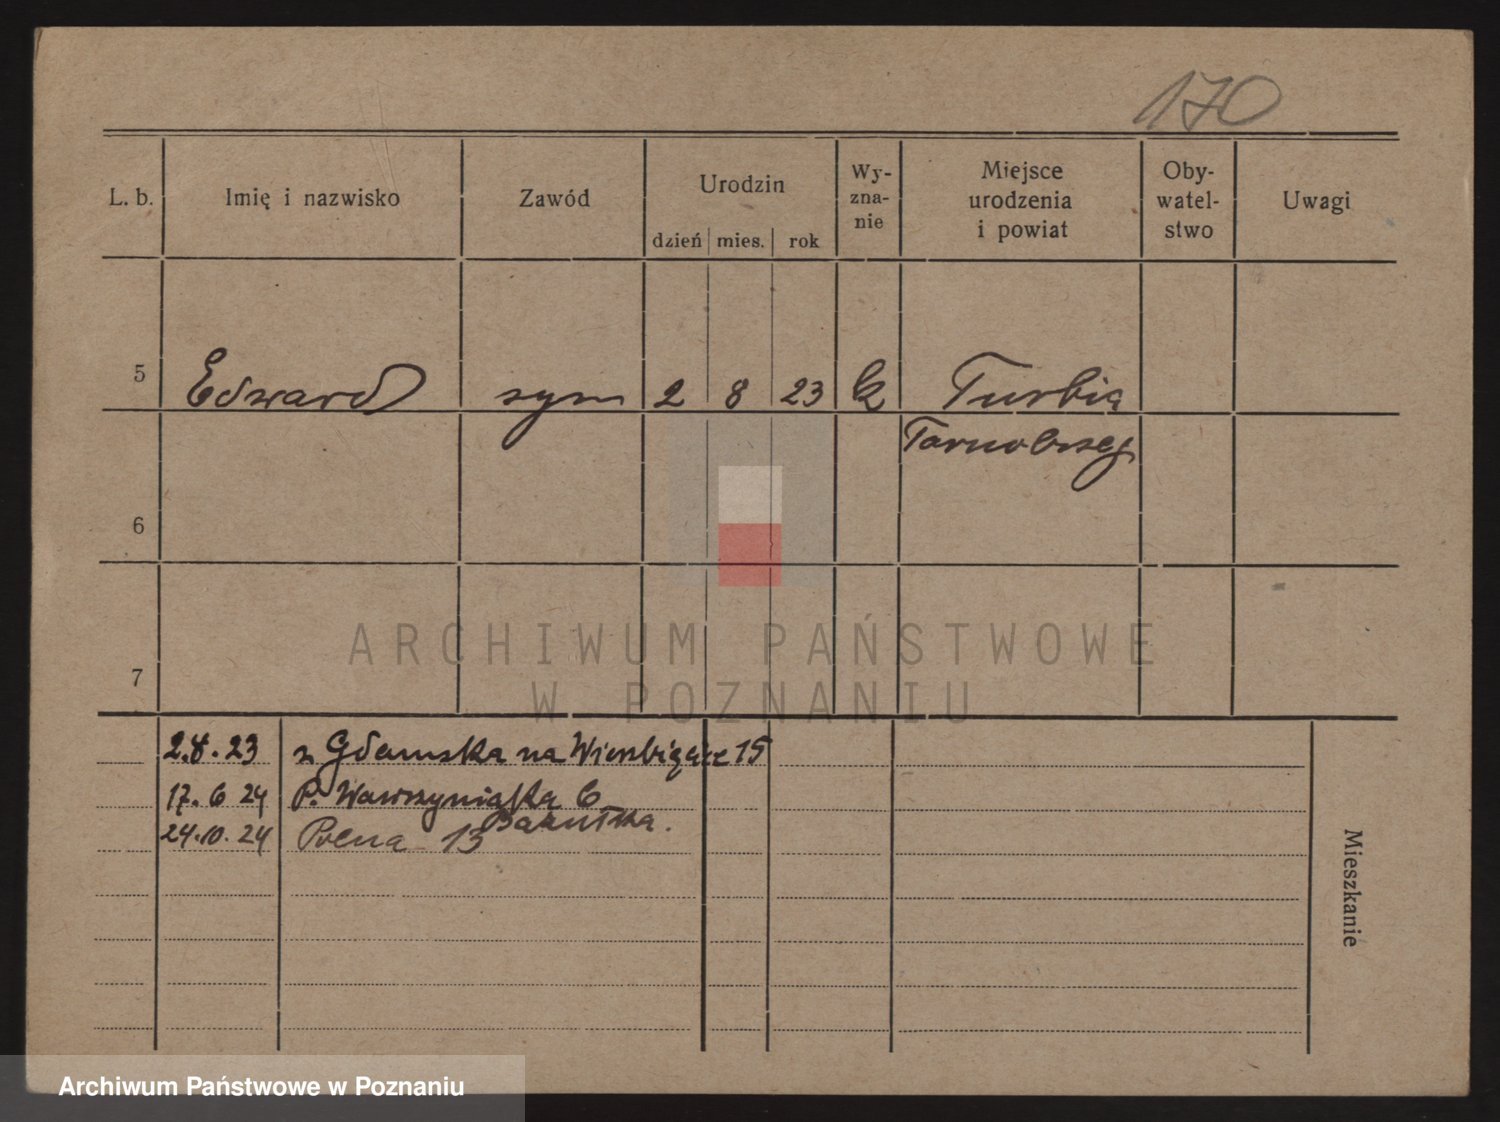 170
L. b. Imię i nazwisko Zawód Urodzin dzień mies. rok Wy- zna- nie Miejsce urodzenia i powiat Oby- watel- stwo Uwagi
5 Edward syn 2 8 23 k Turbia
Tarnobrzeg
6
7
ARCHIWUM PAŃSTWOWE
W POZNANIU
2.8.23 z Gdańska na Wierzbięcice 15
17. 6 24 P. Wawrzyniaka 6
24.10. 24 Polna 13
Mieszkanie
Archiwum Państwowe w Poznaniu